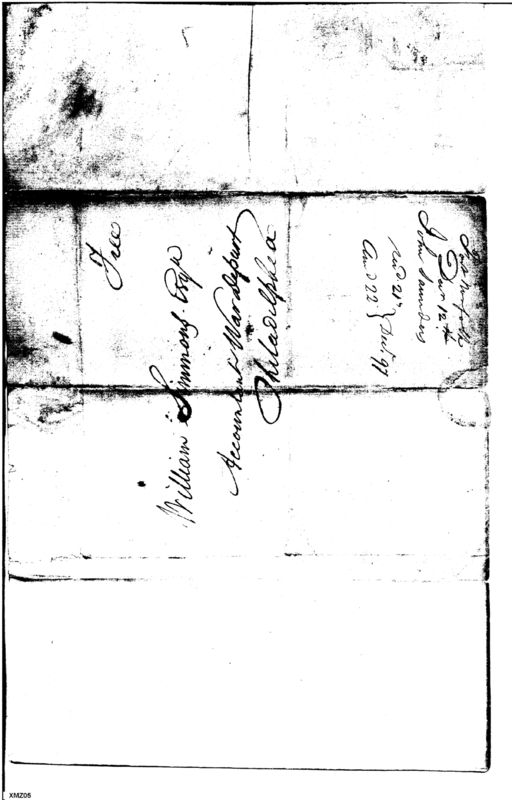 Free
William Simmons Esqr
Accountant War depart
Philadelphia
Decr 12th
John Saunders
recd 21st } Decr 97
And 22d }
XMZ05